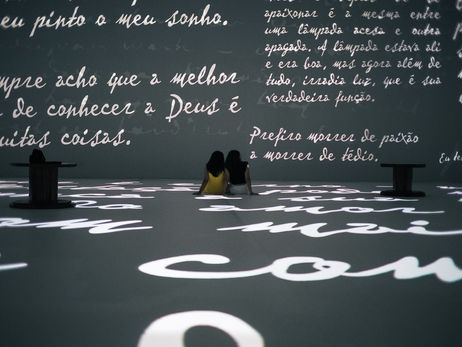 eu pinto o meu sonho.
mpre acho que a melhor
de conhecer a Deus é
uitas coisas.
apaixonar é a mesma entre
uma lâmpada acesa e outra
apagada. A lâmpada estava ali
e era boa, mas agora além de
tudo, irradia luz, que é sua
verdadeira função.
Prefiro morrer de paixão
a morrer de tédio.
Eu
amor
com